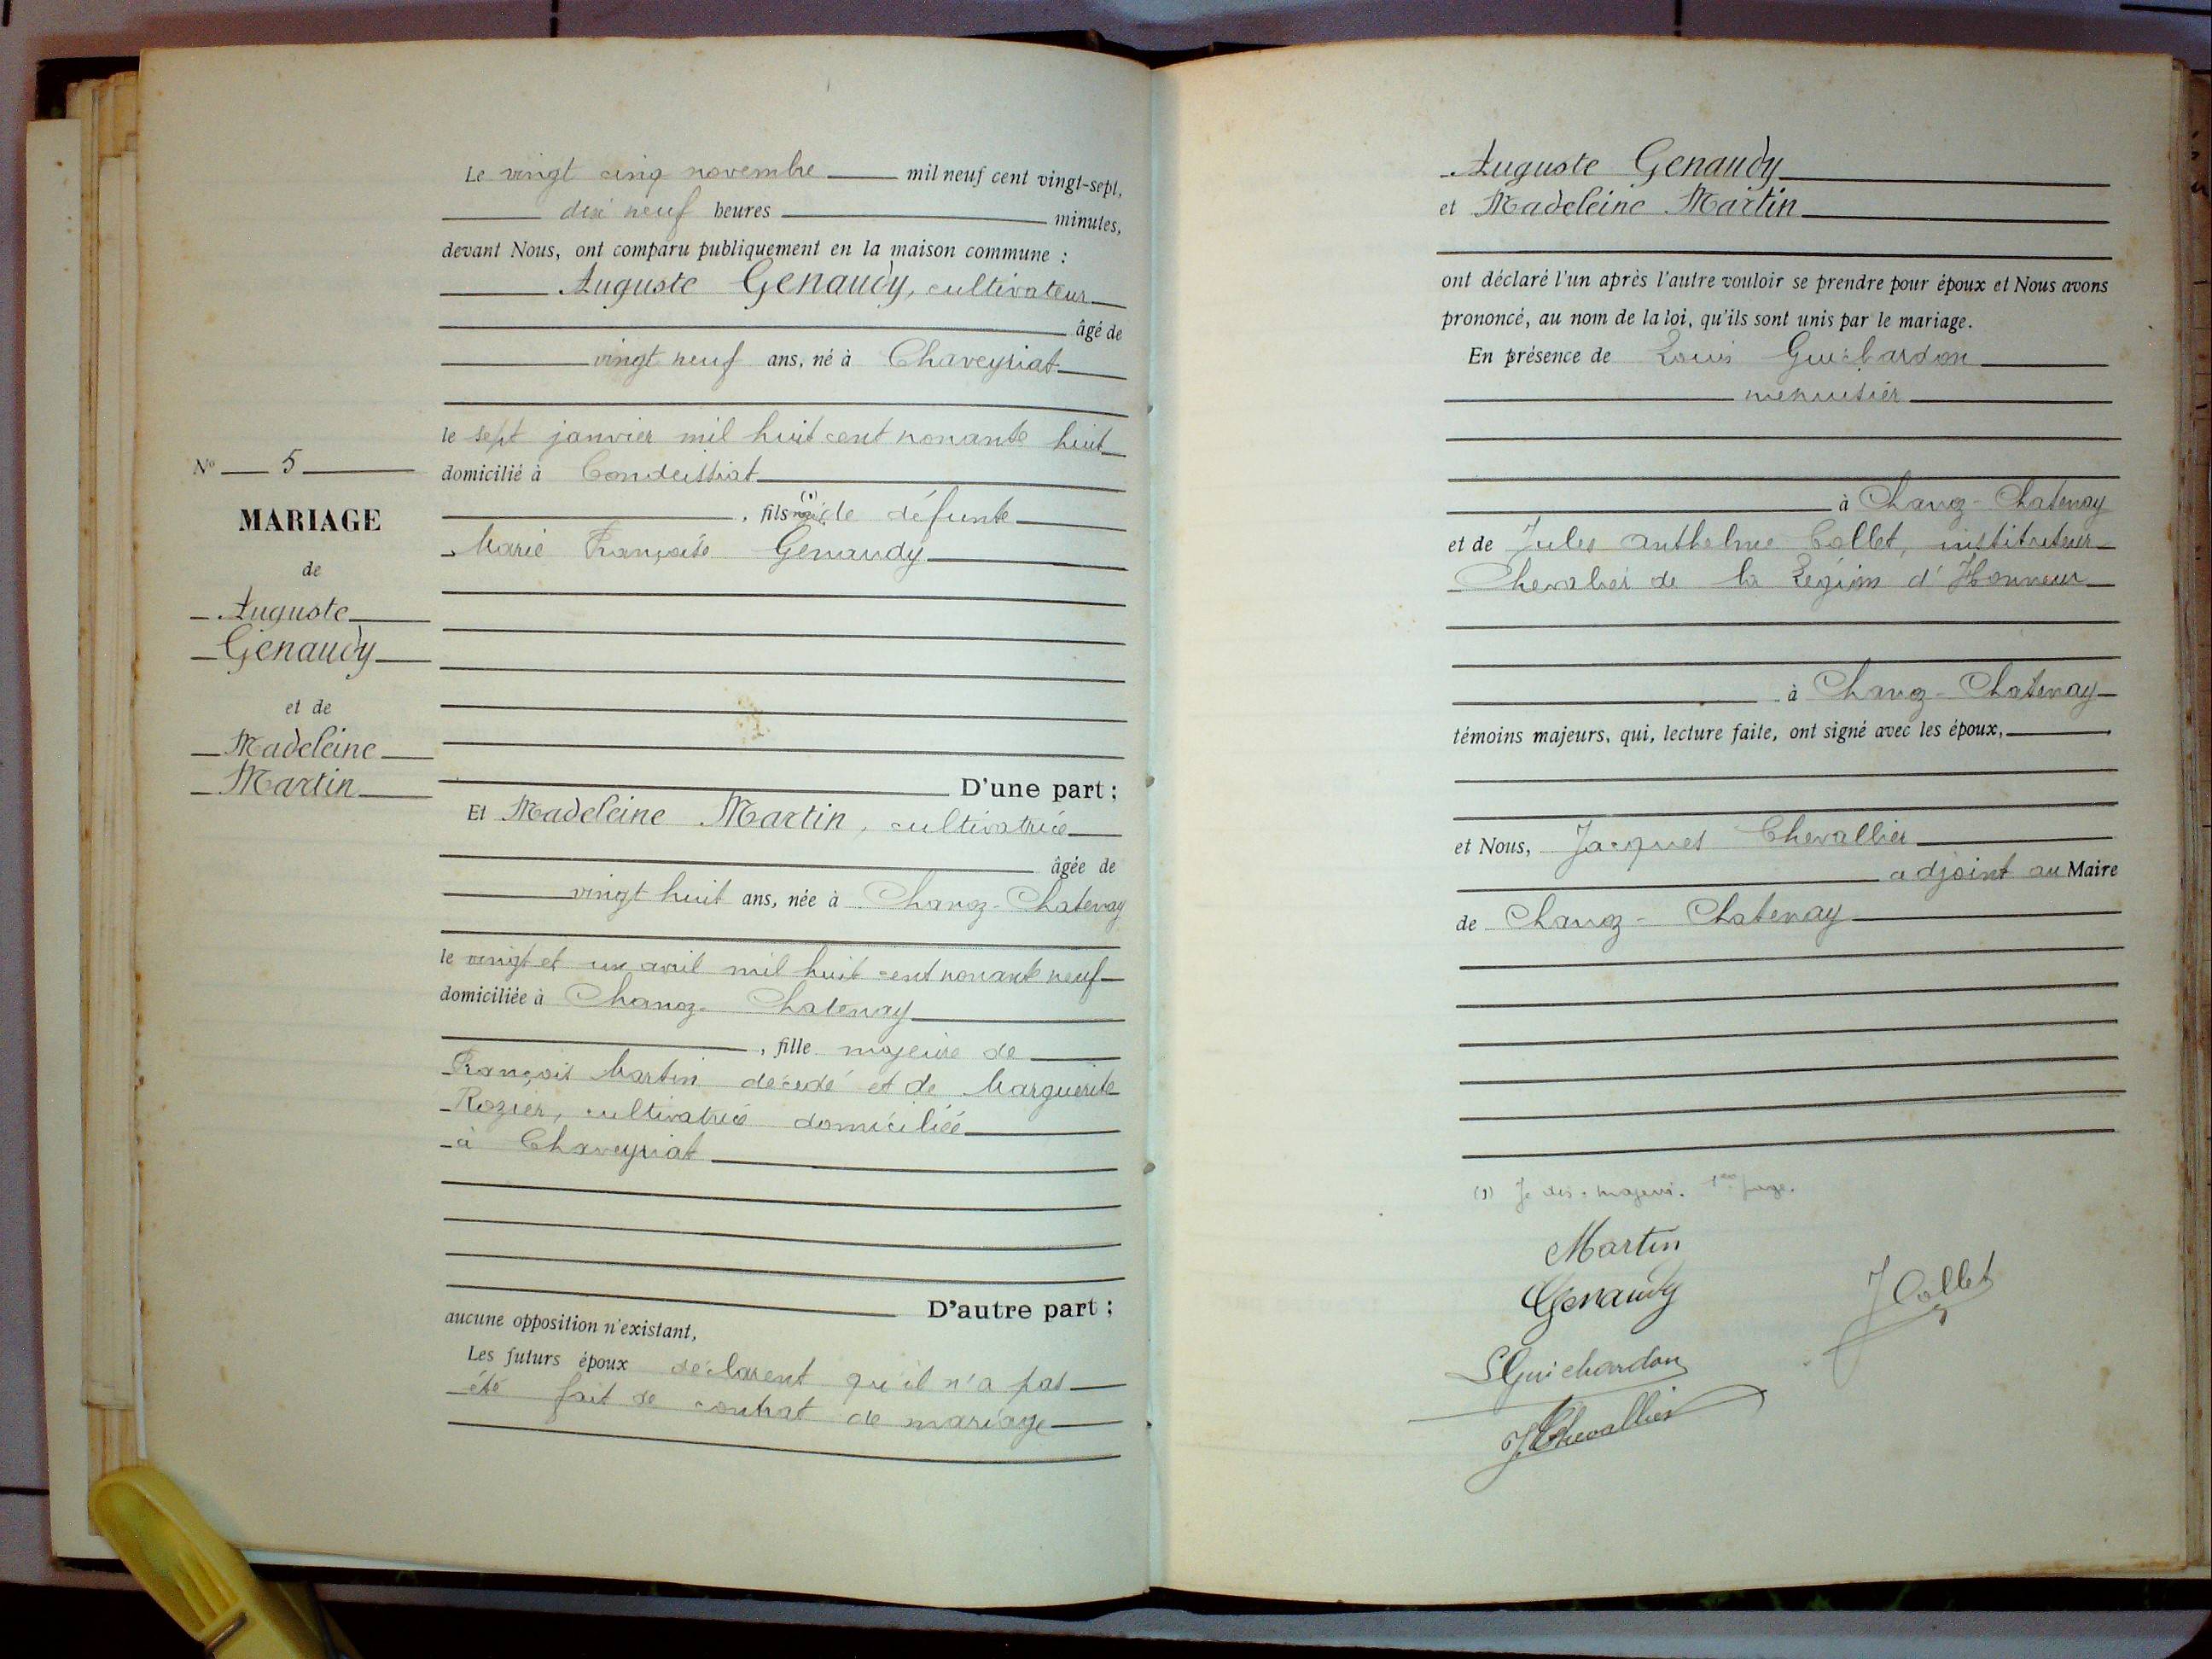 Le vingt cinq novembre mil neuf cent vingt-sept,
dix neuf heures minutes,
devant Nous, ont comparu publiquement en la maison commune :
Auguste Genaudy, cultivateur
âgé de
vingt neuf ans, né à Chaveyriat
le sept janvier mil huit cent nonante huit
domicilié à Condeissiat
, fils (1) de défunte
Marie Françoise Genaudy
N° 5
MARIAGE
de
Auguste
Genaudy
et de
Madeleine
Martin
D'une part ;
Et Madeleine Martin, cultivatrice
âgée de
vingt huit ans, née à Chanoz-Chatenay
le vingt et un avril mil huit cent nonante neuf
domiciliée à Chanoz-Chatenay
, fille majeure de
François Martin décédé et de Marguerite
Rozier, cultivatrice domiciliée
à Chaveyriat
D'autre part ;
aucune opposition n'existant,
Les futurs époux déclarent qu'il n'a pas
été fait de contrat de mariage
Auguste Genaudy
et Madeleine Martin
ont déclaré l'un après l'autre vouloir se prendre pour époux et Nous avons
prononcé, au nom de la loi, qu'ils sont unis par le mariage.
En présence de Louis Guichardon
menuisier
à Chanoz-Chatenay
et de Jules Anthelme Collet, instituteur
Chevalier de la Légion d'Honneur
à Chanoz-Chatenay
témoins majeurs, qui, lecture faite, ont signé avec les époux,
et Nous, Jacques Chevallier
adjoint au Maire
de Chanoz-Chatenay
(1) Je dis : majeur. 1ère page.
Martin
Genaudy
J Collet
L Guichardon
J Chevallier